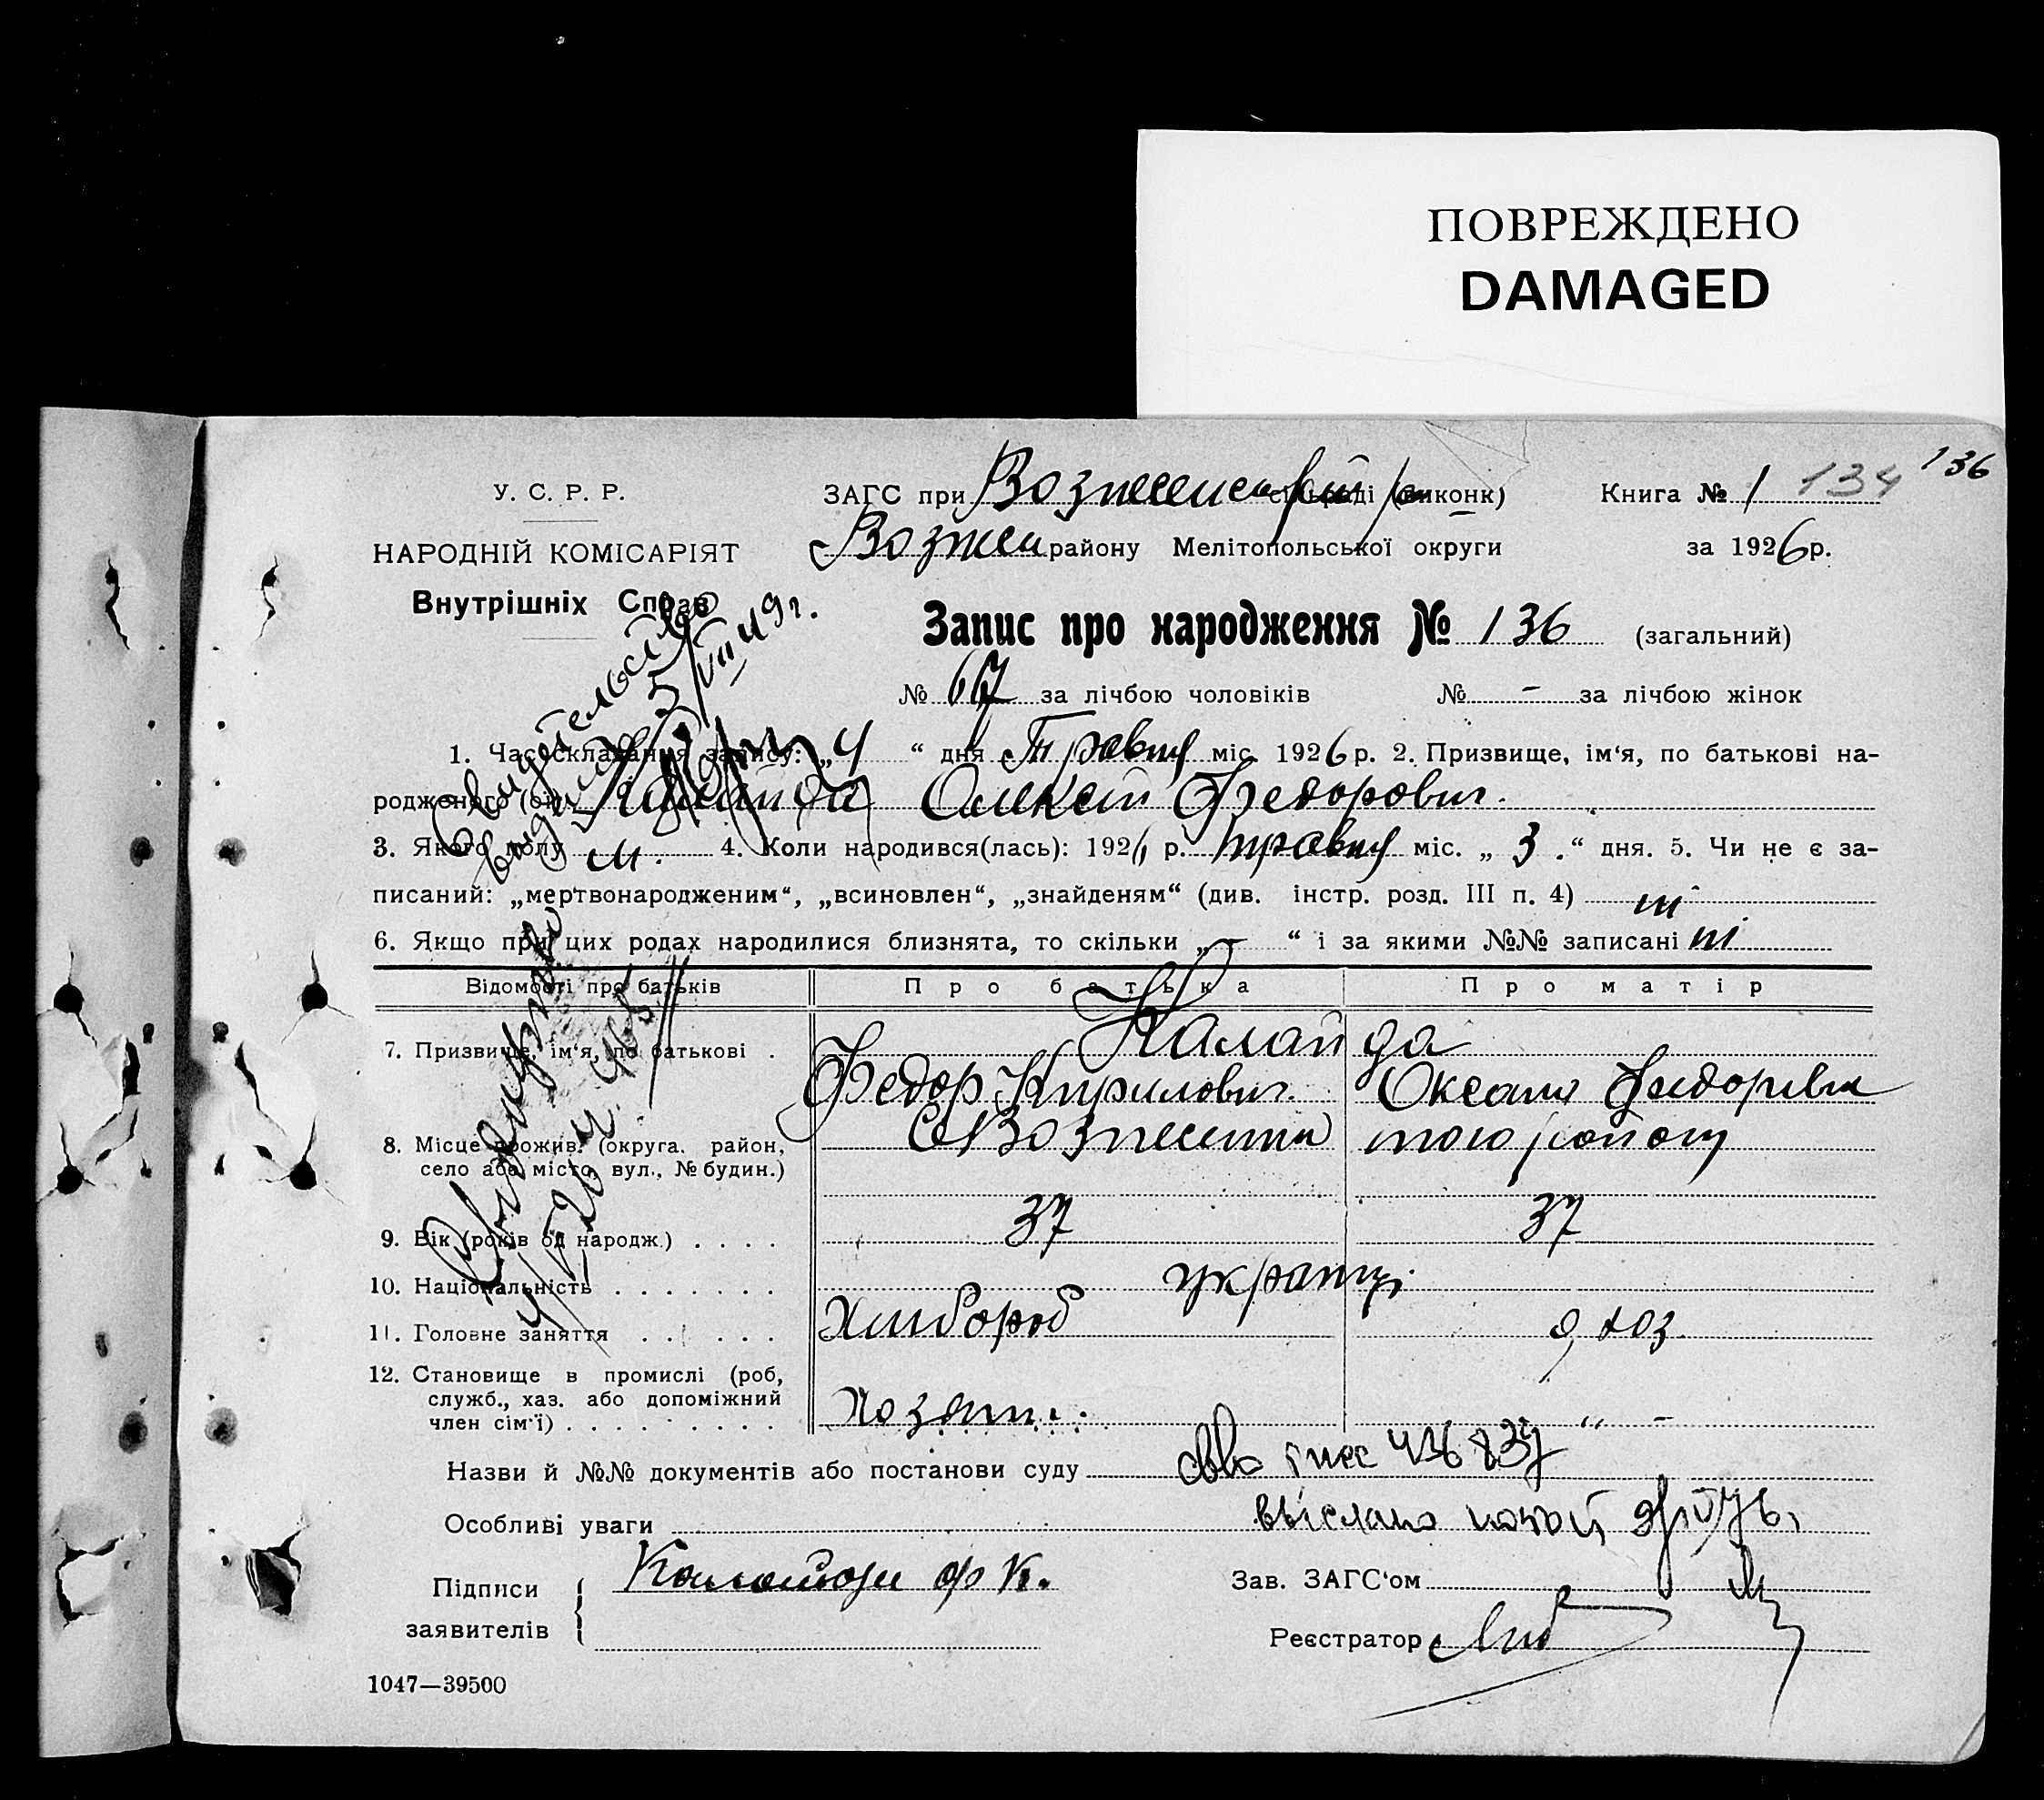 ПОВРЕЖДЕНО
DAMAGED
136
У. С. Р. Р.
ЗАГС при сільраді (виконк) Книга № 1 134
НАРОДНІЙ КОМІСАРІЯТ
Возн району Мелітопольської округи за 1926 р.
Внутрішніх Справ
Запис про народження № 136 (загальний)
№ 67 за лічбою чоловіків № - за лічбою жінок
1. Час складання запису: „4“ дня Травня міс. 1926 р. 2. Призвище, ім‘я, по батькові на-
родженого (ої) Калайда Олексій Федорович.
3. Якого полу м. 4. Коли народився(лась): 1926 р. травня міс. „3.“ дня. 5. Чи не є за-
писаний: „мертвонародженим“, „всиновлен“, „знайденям“ (див. інстр. розд. III п. 4) ні
6. Якщо при цих родах народилися близнята, то скільки „-“ і за якими №№ записані ні
Свидетельство
5/VII 49 г.
Відомості про батьків Про батька Про матір
7. Призвище, ім‘я, по батькові . Калайда
Федор Кирилович. Оксана Федорівна
8. Місце прожив. (округа, район,
село або місто, вул., № будин.)
9. Вік (років од народж.) . . . . 37 37
10. Національність . . . . . . . українці
11. Головне заняття . . . . . . Хлибороб д, хоз
12. Становище в промислі (роб,
служб., хаз. або допоміжний
член сім‘ї) . . . . . . . . „ -
Назви й №№ документів або постанови суду
Особливі уваги выслано
Підписи
заявителів
Ф К.
Зав. ЗАГС‘ом
Реєстратор
1047—39500